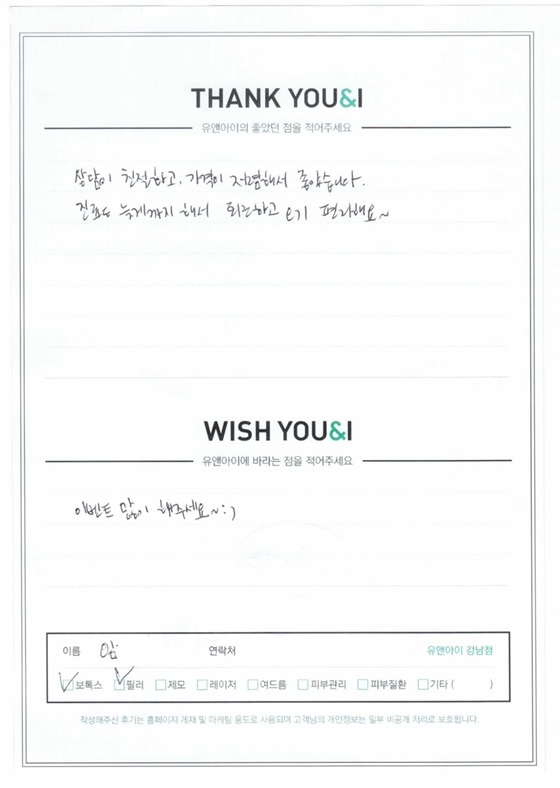 THANK YOU&I
유앤아이의 좋았던 점을 적어주세요
상담이 친절하고, 가격이 저렴해서 좋았습니다.
진료도 늦게까지 해서 퇴근하고 오기 편리해요~
WISH YOU&I
유앤아이에 바라는 점을 적어주세요
이벤트 많이 해주세요~:)
이름 연락처 유앤아이 강남점
보톡스 필러 제모 레이저 여드름 피부관리 피부질환 기타 ( )
작성해주신 후기는 홈페이지 게재 및 마케팅 용도로 사용되며 고객님의 개인정보는 일부 비공개 처리로 보호됩니다.